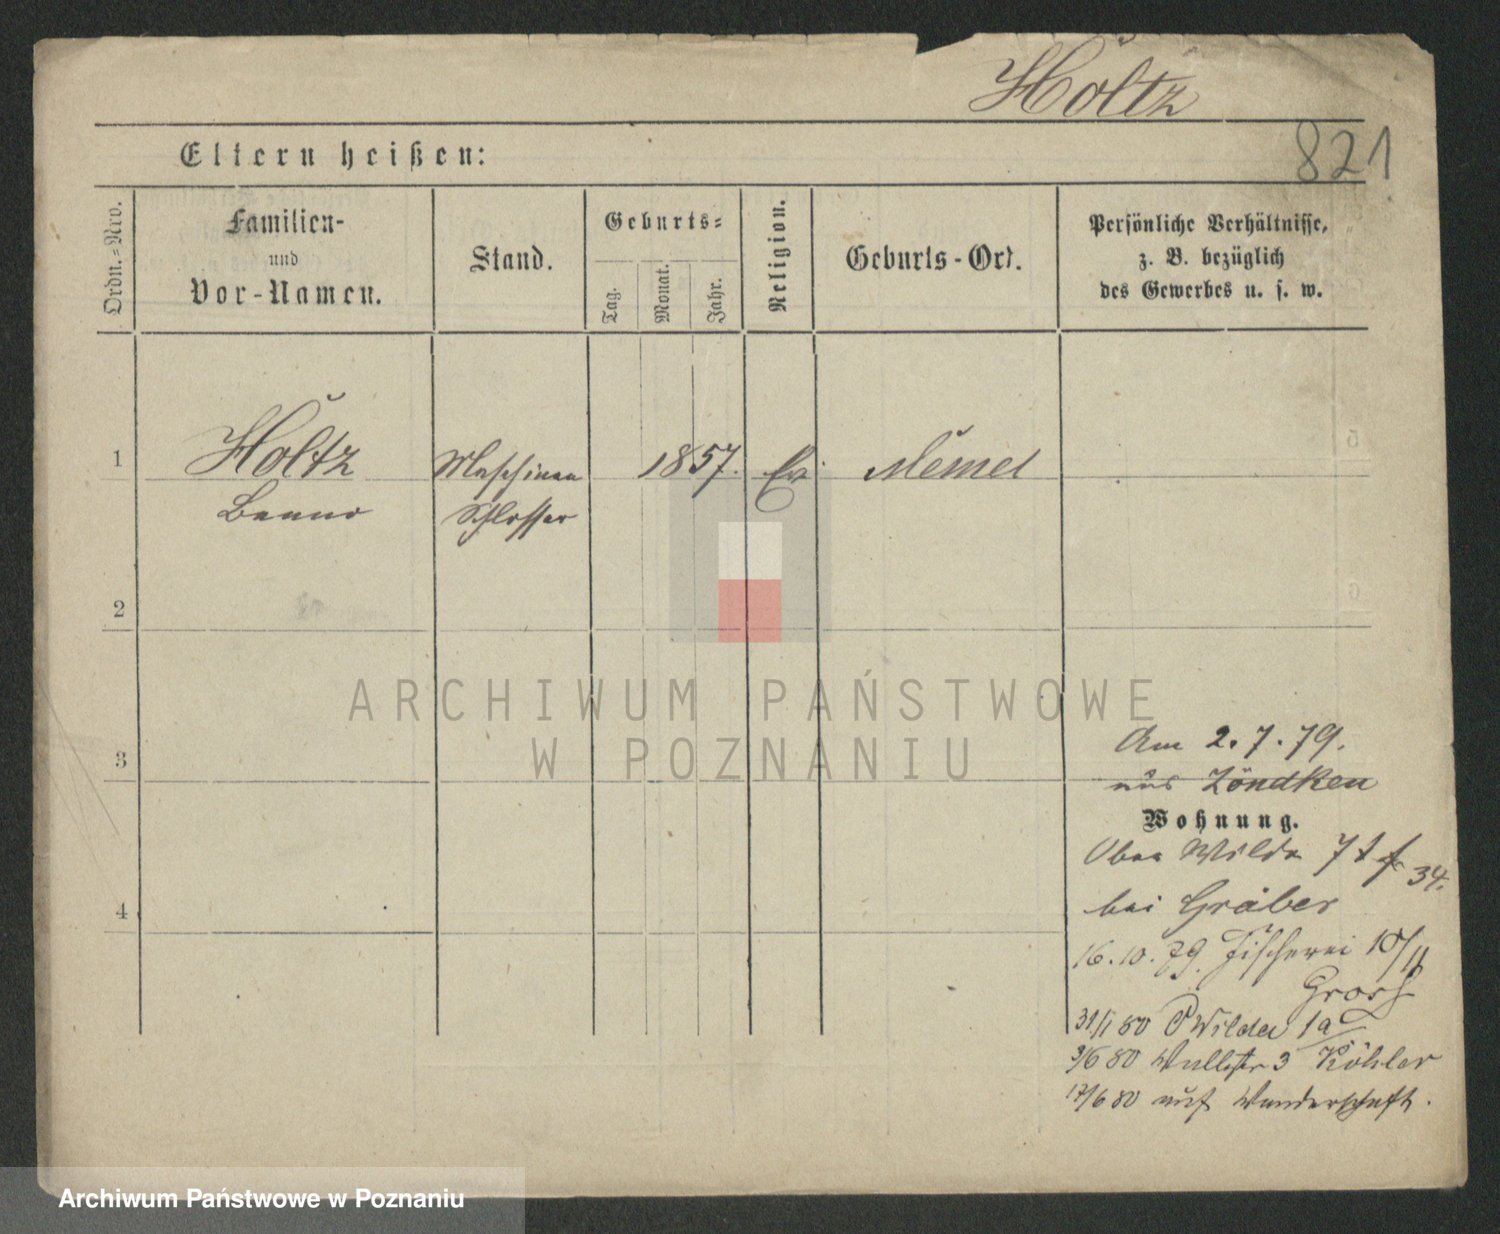 Holtz
821
Eltern heißen:
Ordn.=Nro.
Familien-
und
Vor-Namen.
Stand.
Geburts=
Tag.
Monat.
Jahr.
Religion.
Geburts-Ort.
Persönliche Verhältnisse,
z. B. bezüglich
des Gewerbes u. s. w.
1
Holtz
Benno
Maschinen
Schlosser
1857.
Ev
Memel
2
3
4
Am 2.7.79.
aus
Wohnung.
Ober Wilda 7
34.
bei Gräber
16.10.79. Fischerei 10/11
31/1 80 Wilda 1a
3/6 80 Wallstr 3 Köhler
17/6 80 auf Wanderschaft.
ARCHIWUM PAŃSTWOWE
W POZNANIU
Archiwum Państwowe w Poznaniu